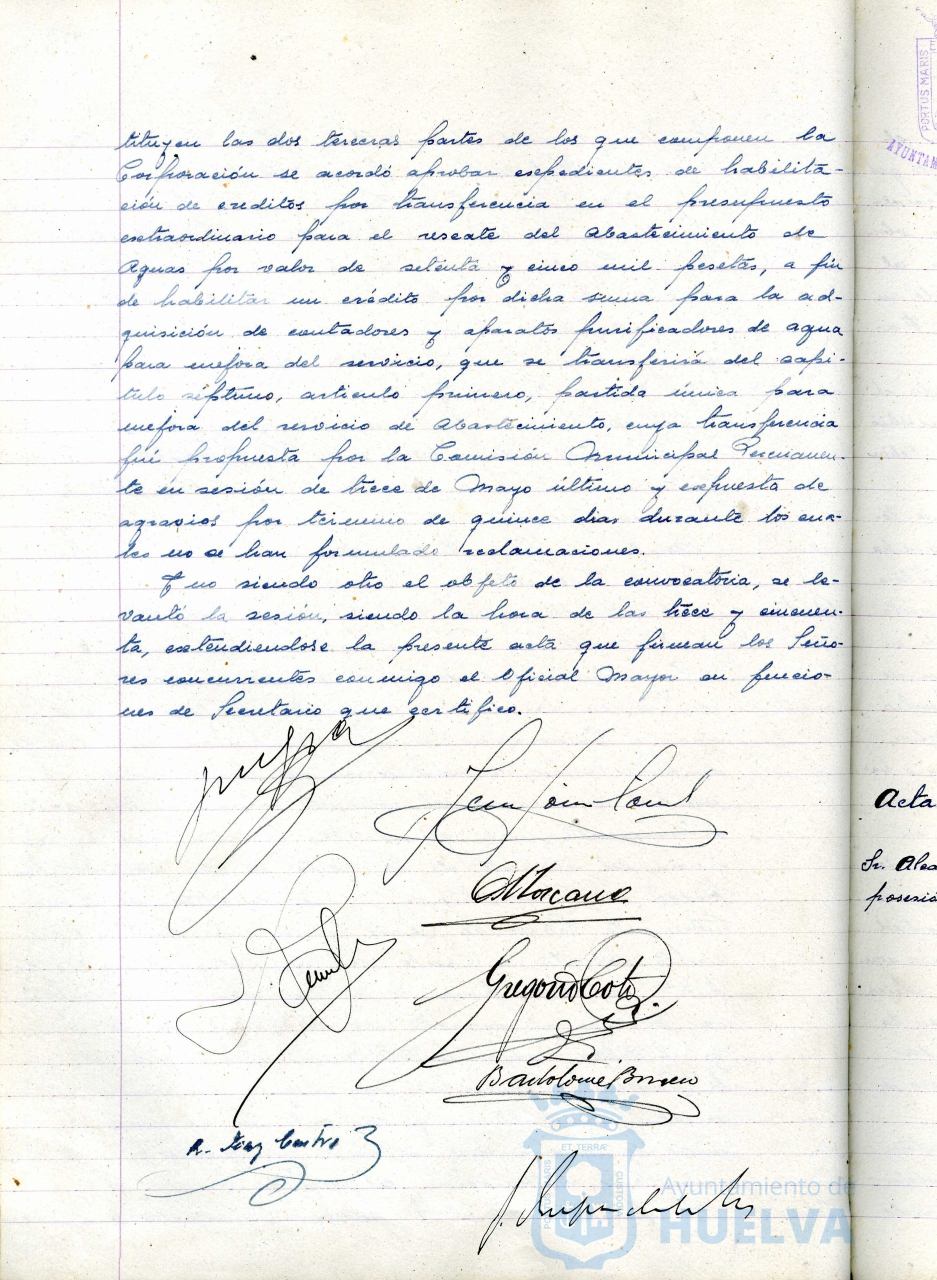 tituyen las dos terceras partes de los que componen la
Corporación se acordó aprobar espedientes de habilita-
ción de creditos por transferencia en el presupuesto
extraordinario para el rescate del Abastecimiento de
Aguas por valor de setenta y cinco mil pesetas, a fin
de habilitar un crédito por dicha suma para la ad-
quisición de contadores y aparatos purificadores de agua
para mejora del servicio, que se transferirá del capi-
tulo séptimo, articulo primero, partida única para
mejora del servicio de Abastecimiento, cuya transferencia
fué propuesta por la Comisión Municipal Permanen-
te en sesión de trece de Mayo último y expuesta de
agravios por termino de quince dias durante los cua-
les no se han formulado reclamaciones.
Y no siendo otro el objeto de la convocatoria, se le-
vantó la sesión, siendo la hora de las trece y cincuen-
ta, extendiendose la presente acta que firman los Seño-
res concurrentes conmigo el Oficial Mayor en funcio-
nes de Secretario que certifico.
Gregorio Coto
Bartolomé
ET TERRÆ
PORTUS MARIS
CUSTODIA
Ayuntamiento de
HUELVA
PORTUS MARIS
AYUNTAM
Acta
Sr. Alca
posesió